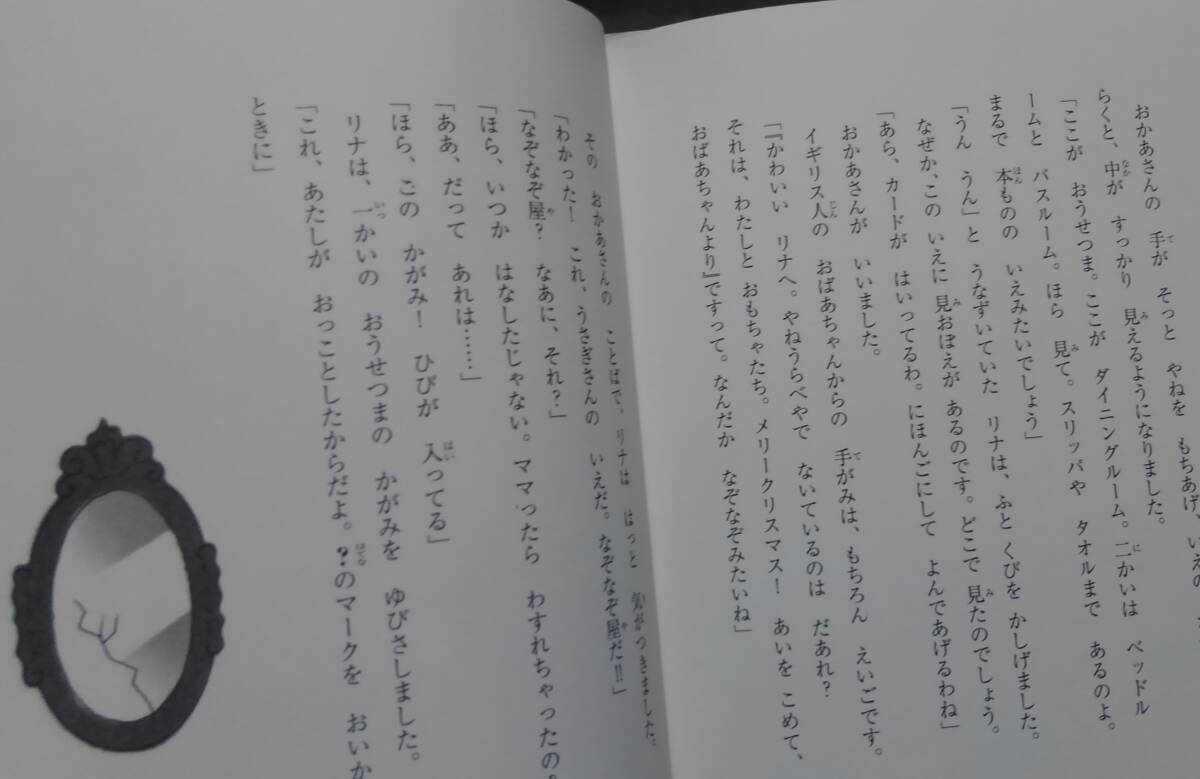 おかあさんの 手が そっと やねを もちあげ、いえの
らくと、中が すっかり 見えるようになりました。
「ここが おうせつま。ここが ダイニングルーム。二かいは ベッドル
ームと バスルーム。ほら 見て。スリッパや タオルまで あるのよ。
まるで 本ものの いえみたいでしょう」
「うん うん」と うなずいていた リナは、ふと くびを かしげました。
なぜか、この いえに 見おぼえが あるのです。どこで 見たのでしょう。
「あら、カードが はいってるわ。にほんごにして よんであげるわね」
おかあさんが いいました。
イギリス人の おばあちゃんからの 手がみは、もちろん えいごです。
「『かわいい リナへ。やねうらべやで ないているのは だあれ?
それは、わたしと おもちゃたち。メリークリスマス! あいを こめて、
おばあちゃんより』ですって。なんだか なぞなぞみたいね」
その おかあさんの ことばで、リナは はっと 気がつきました。
「わかった! これ、うさぎさんの いえだ。なぞなぞ屋だ!!」
「なぞなぞ屋? なあに、それ?」
「ほら、いつか はなしたじゃない。ママったら わすれちゃったの?
「ああ、だって あれは……」
「ほら、この かがみ! ひびが 入ってる」
リナは、一かいの おうせつまの かがみを ゆびさしました。
「これ、あたしが おっことしたからだよ。?のマークを おいか
ときに」